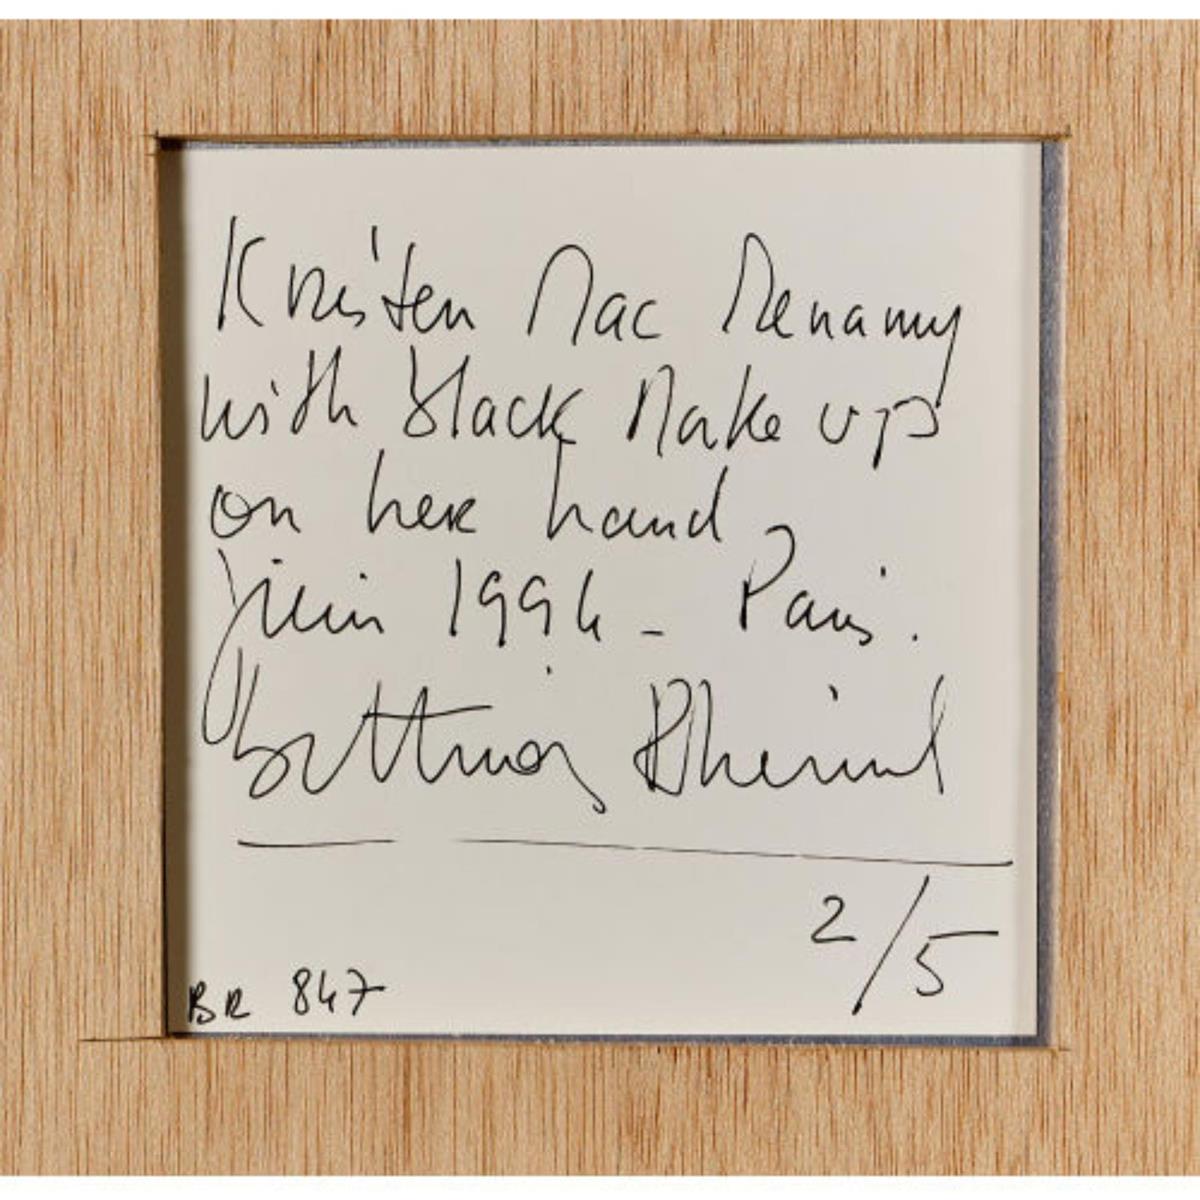 Kristen Mac Menamy
with black Make up
on her hand,
juin 1994 - Paris.
Bettina Rheims
2/5
BR 847